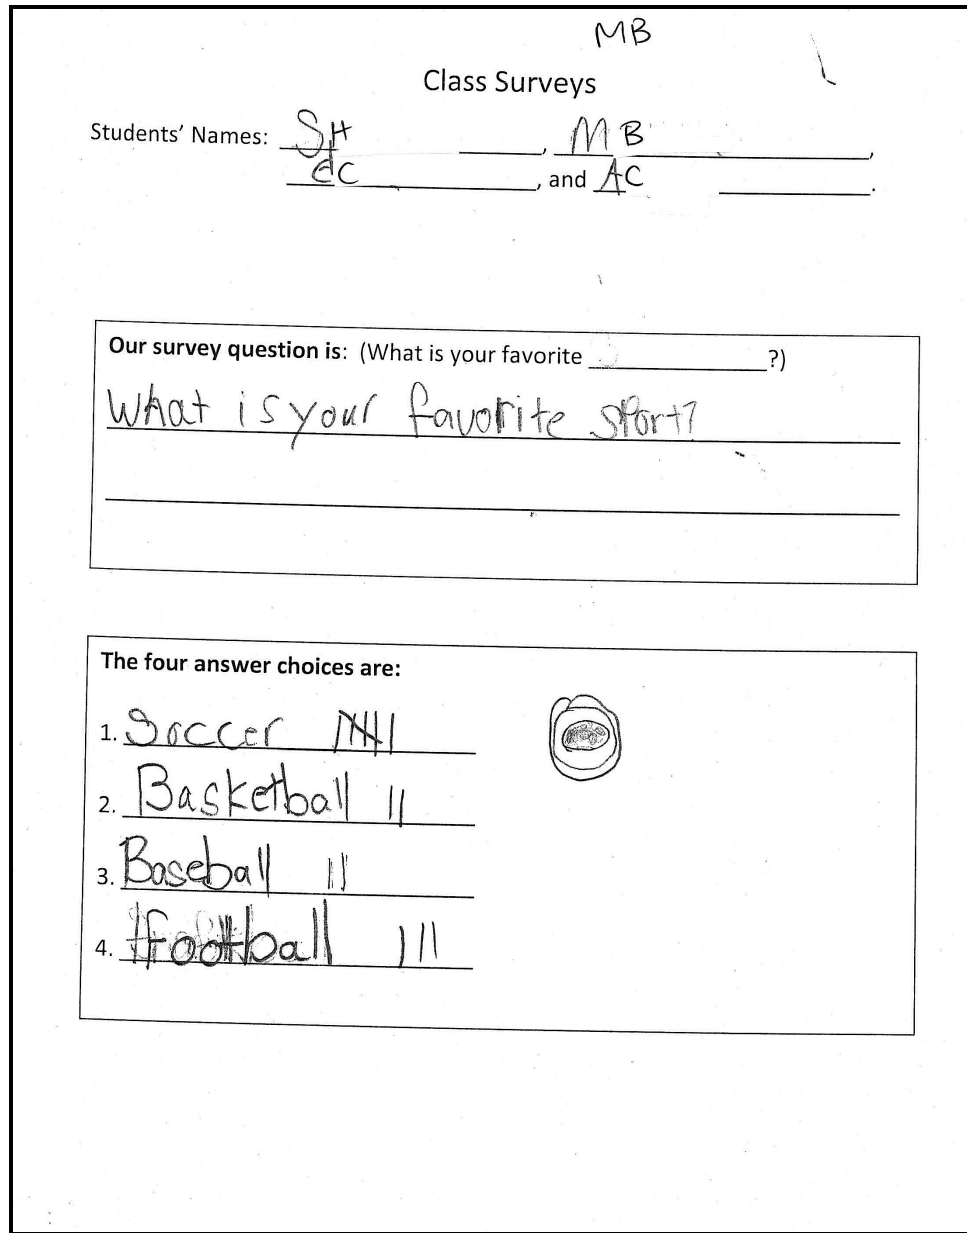 MB
Class Surveys
Students' Names: SH, MB,
dC, and AC.
Our survey question is: (What is your favorite ___?)
What is your favorite sport?
The four answer choices are:
1. Soccer
2. Basketball ||
3. Baseball ||
4. football |||